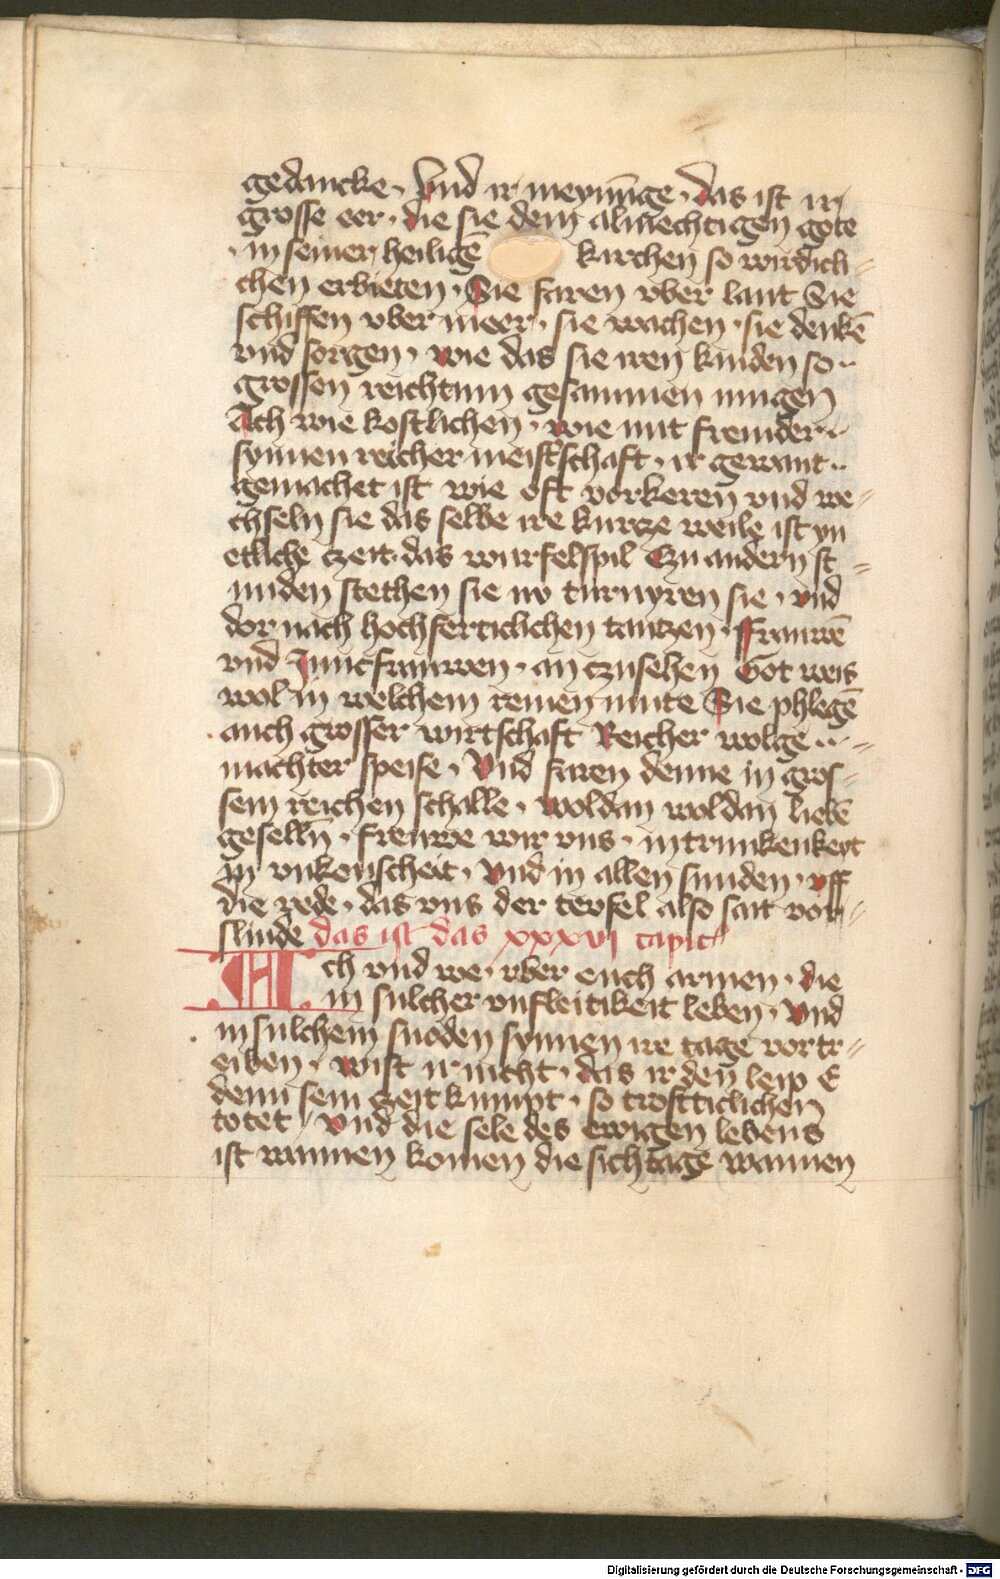 gedancke · Vnd ir meynu̅ge · das ist ir
grosse eer · die sie dem almechtigen gote
· in seiner heilige̅ kirchen so wirdicli=
chen erbieten · Sie faren vber lant Sie
schiffen vber meer · sie wachen · sie denke̅
vnd sorgen · wie das sie iren kinden so ··
grossen reichtum gesammen mugen
Ach wie kostlichen · wie mit fremder ··
synnen reicher meist'schaft · ir gewant ··
gemachet ist wie oft vorkeren vnd we=
chseln sie das selbe ire kurcze weile ist yn
etliche czeit · das wurfelspil Czu andern st=
unden stethen sie uv turnyren sie · vnd
dor nach hochferticlichen tantzen · Frauwe̅
vnd Juncfrauwen · an czusehen Got weis
wol in welchem reinen mute Sie phlege̅
· auch grosser wirtschaft Reicher wolge ··=
machter speise · Vnd faren denne in gros=
sem reichen schalle · woldan woldan liebe̅
geselln̅ · freuwe wir vns · in trunkenkeyt
in vnkeuscheit · Vnd in allen sunden · vff
die rede · das vns der teufel also sait vor=
slinde das ist das xxxvj capit'
Ach vnd we · vber euch armen · die
in sulcher vnfletikeit leben · Vnd
· in sulchem snoden synnen ire tage vortr=
eiben · wist ir nicht · das ir den leip E
denn sein zeit kumpt · so trostticlichen
totet / vnd die sele des ewigen lebens
ist wannen komen die sichtage wannen
Digitalisierung gefördert durch die Deutsche Forschungsgemeinschaft - DFG